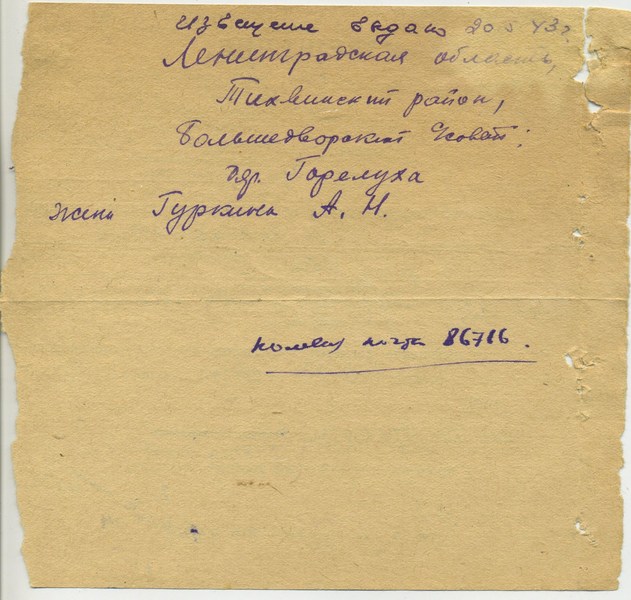 Извещение выдано 20 5 43 г.
Ленинградская область,
Тихвинский район,
Большедворский с/совет;
дер. Горелуха
жена Гуркина А. Н.
полевая почта 86716.